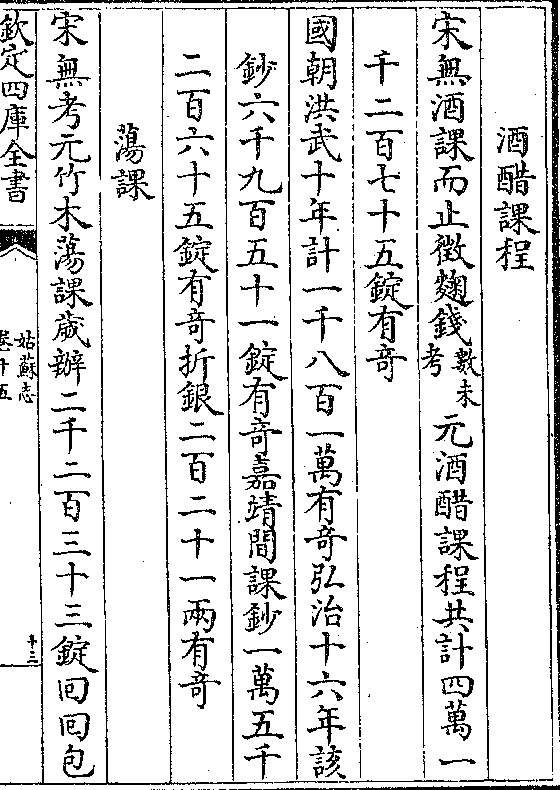 酒醋課程
宋無酒課而止徴麴錢數未考元酒醋課程共計四萬一
千二百七十五錠有奇
國朝洪武十年計一千八百一萬有奇弘治十六年該
鈔六千九百五十一錠有奇嘉靖間課鈔一萬五千
二百六十五錠有奇折銀二百二十一兩有奇
蕩課
宋無考元竹木蕩課歲辦二千二百三十三錠囘囘包
欽定四庫全書
姑蘇志
卷十五
十三